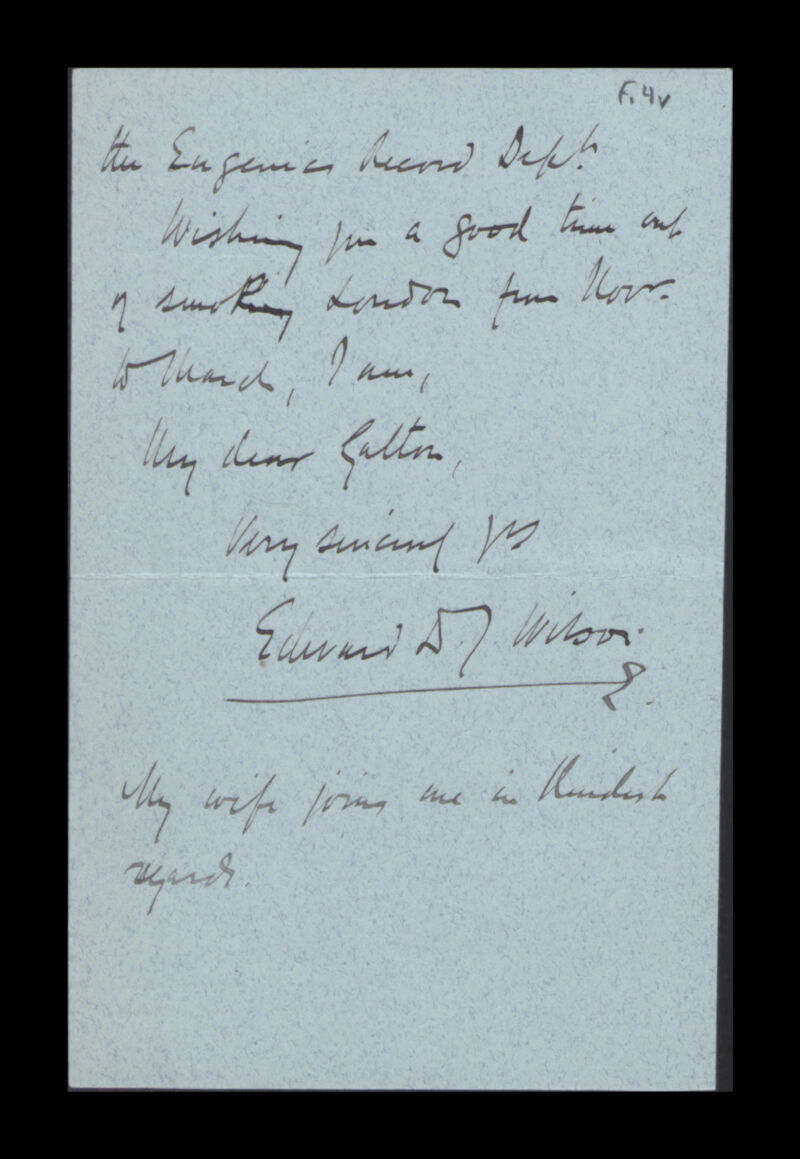 F. 4v
the Eugenics Record Dept.
Wishing you a good time out
of smoking London from Novr.
to March, I am,
My dear Galton,
Very sincerely yrs
Edward D. J. Wilson.
My wife joins me in kindest
regards.